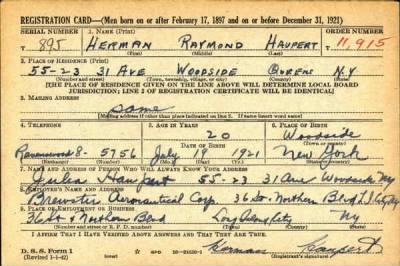 REGISTRATION CARD—(Men born on or after February 17, 1897 and on or before December 31, 1921)
SERIAL NUMBER 1. NAME (Print) ORDER NUMBER
T 895 HERMAN RAYMOND HAUPERT 11,915
(First) (Middle) (Last)
2. PLACE OF RESIDENCE (Print)
55-23 31 AVE WOODSIDE QUEENS N.Y
(Number and street) (Town, township, village, or city) (County) (State)
[THE PLACE OF RESIDENCE GIVEN ON THE LINE ABOVE WILL DETERMINE LOCAL BOARD
JURISDICTION; LINE 2 OF REGISTRATION CERTIFICATE WILL BE IDENTICAL]
3. MAILING ADDRESS
Same
[Mailing address if other than place indicated on line 2. If same insert word same]
4. TELEPHONE 5. AGE IN YEARS 6. PLACE OF BIRTH
20 Woodside
DATE OF BIRTH (Town or county)
Ravenswood 8- 5756 July 19 1921 New York
(Exchange) (Number) (Mo.) (Day) (Yr.) (State or country)
7. NAME AND ADDRESS OF PERSON WHO WILL ALWAYS KNOW YOUR ADDRESS
Julia Haupert 55-23 31 Ave Woodside Ny
8. EMPLOYER'S NAME AND ADDRESS
Brewster Aeronautical Corp. 36 St. Northern Blvd L.I. City Ny
9. PLACE OF EMPLOYMENT OR BUSINESS
36 St & Northern Blvd Ny
(Number and street or R. F. D. number) (Town) (County) (State)
I AFFIRM THAT I HAVE VERIFIED ABOVE ANSWERS AND THAT THEY ARE TRUE.
D. S. S. Form 1
(Revised 1-1-42) Herman Haupert
(Registrant's signature)